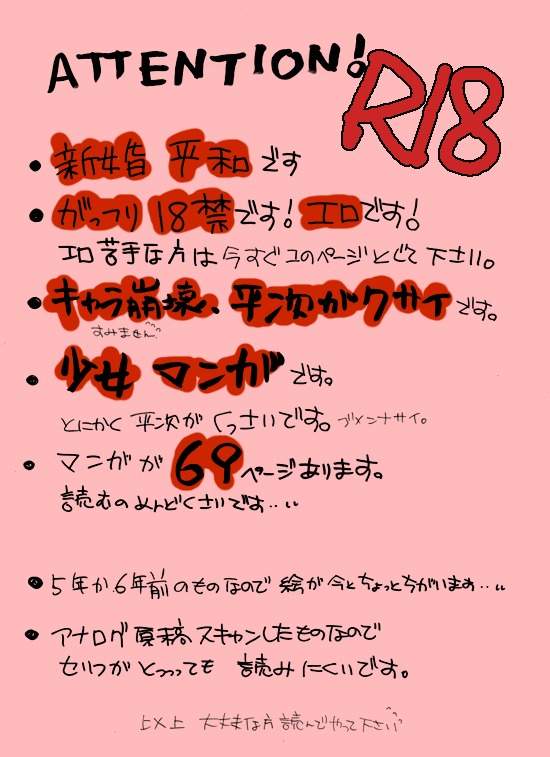 ATTENTION!
R18
• 新婚 平和 です
• がっつり 18禁です! エロです!
エロ苦手な方は今すぐこのページとじて下さい。
• キャラ崩壊、平次がクサイです。
すみません
• 少女マンガです。
とにかく平次がくっさいです。ゴメンナサイ。
• マンガが69ページあります。
読むのめんどくさいです‥‥
• 5年か6年前のものなので絵が今とちょっとちがいます‥‥
• アナログ原稿スキャンしたものなので
セリフがとっっっても 読みにくいです。
以上 大丈夫な方読んでやって下さい